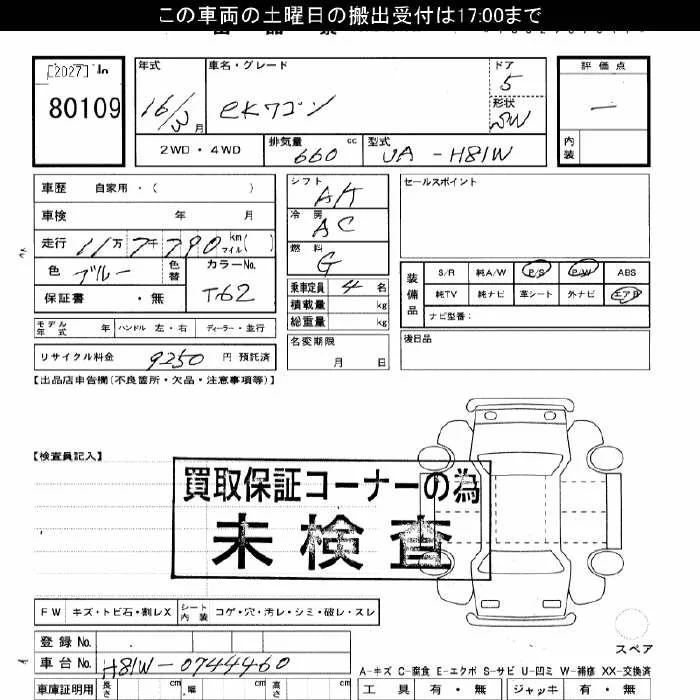 この車両の土曜日の搬出受付は17:00まで
[2027]
80109
年式
16/3月
車名・グレード
eKワゴン
ドア
5
形状
SW
評価点
ー
内装
2WD・4WD
排気量
660 cc
型式
UA-H81W
車歴 自家用・( )
車検 年 月
走行 11万7千790 km マイル( )
色 ブルー
色替
カラーNo.
T62
保証書 ・無
モデル年式 年 ハンドル 左・右 ディーラー・並行
リサイクル料金 9250 円 預託済
シフト
AT
冷房
AC
燃料
G
乗車定員 4 名
積載量 kg
総重量 kg
名変期限
月 日
セールスポイント
装備品
S/R 純A/W P/S P/W ABS
純TV 純ナビ 革シート 外ナビ エアB
ナビ型番:
後日品
【出品店申告欄(不良箇所・欠品・注意事項等)】
【検査員記入】
買取保証コーナーの為
未検査
FW キズ・トビ石・割レX シート内装 コゲ・穴・汚レ・シミ・破レ・スレ
スペア
登録 No.
車台 No. H81W-0744460
A-キズ C-腐食 E-エクボ S-サビ U-凹ミ W-補修 XX-交換済
車庫証明用 長さ cm 幅 cm 高さ cm
工具 有・無 ジャッキ 有・無